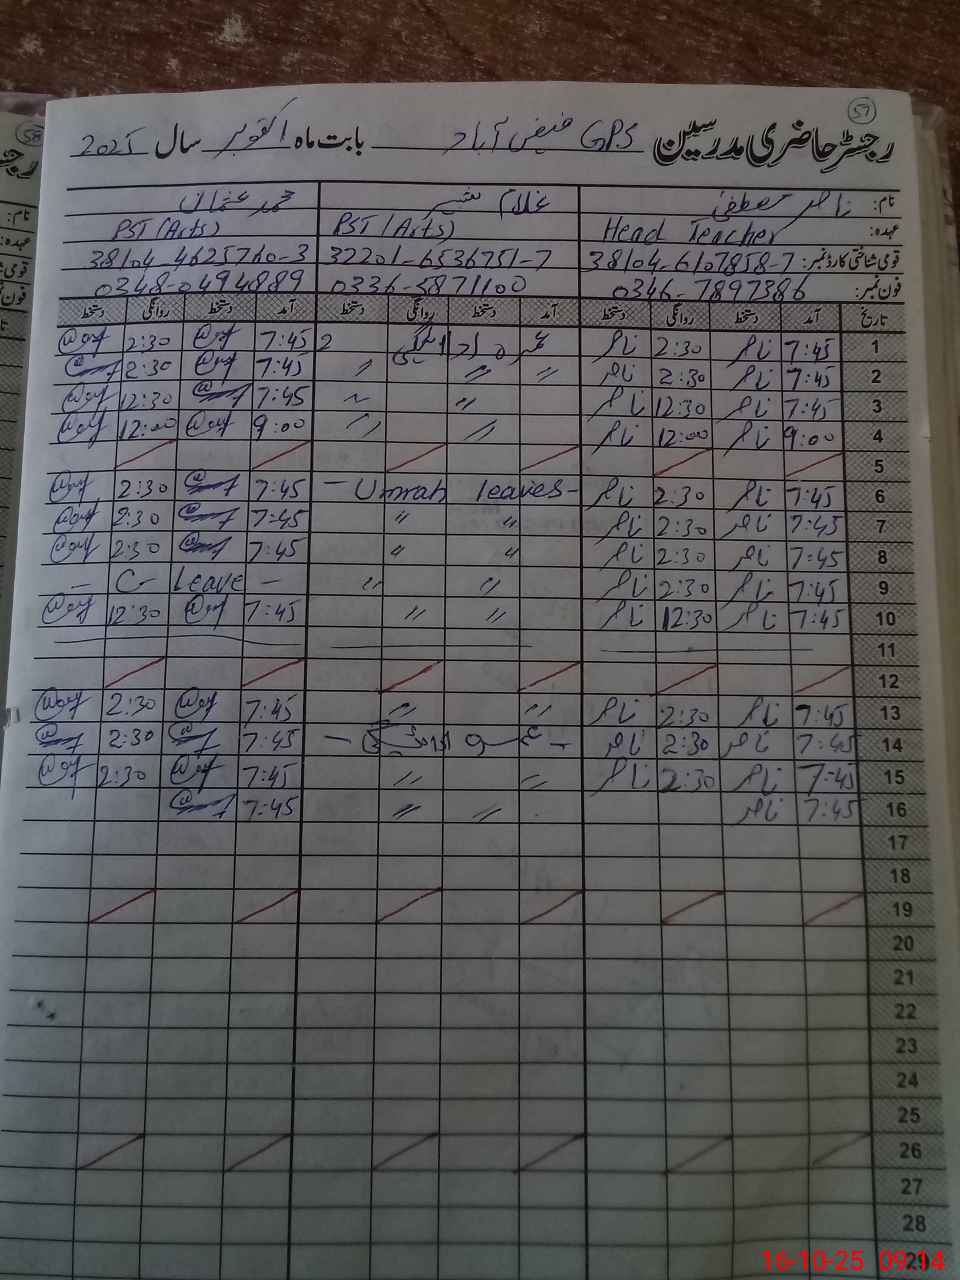 57
رجسٹر حاضری مدرسین GPS فیض آباد بابت ماہ اکتوبر سال 2025
نام: ناصر مصطفیٰ غلام شبیر محمد عثمان
عہدہ: Head Teacher PST (Arts) PST (Arts)
قومی شناختی کارڈ نمبر: 38104-6107858-7 32201-6536751-7 38104-4625760-3
فون نمبر: 0346-7897386 0336-5871100 0348-0494889
تاریخ آمد دستخط روانگی دستخط آمد دستخط روانگی دستخط آمد دستخط روانگی دستخط
1 7:45 ناصر 2:30 ناصر عمرہ ادائیگی 7:45 2:30
2 7:45 ناصر 2:30 ناصر 〃 〃 〃 7:45 2:30
3 7:45 ناصر 12:30 ناصر 〃 〃 7:45 12:30
4 9:00 ناصر 12:00 ناصر 〃 〃 9:00 12:00
5
6 7:45 ناصر 2:30 ناصر - Umrah leaves - 7:45 2:30
7 7:45 ناصر 2:30 ناصر 〃 〃 7:45 2:30
8 7:45 ناصر 2:30 ناصر 〃 〃 7:45 2:30
9 7:45 ناصر 2:30 ناصر 〃 〃 - C- Leave -
10 7:45 ناصر 12:30 ناصر 〃 〃 7:45 12:30
11
12
13 7:45 ناصر 2:30 ناصر 〃 〃 7:45 2:30
14 7:45 ناصر 2:30 ناصر 7:45 2:30
15 7:45 ناصر 2:30 ناصر 〃 〃 7:45 2:30
16 7:45 ناصر 〃 〃 7:45
17
18
19
20
21
22
23
24
25
26
27
28
29
16-10-25 09:14
58